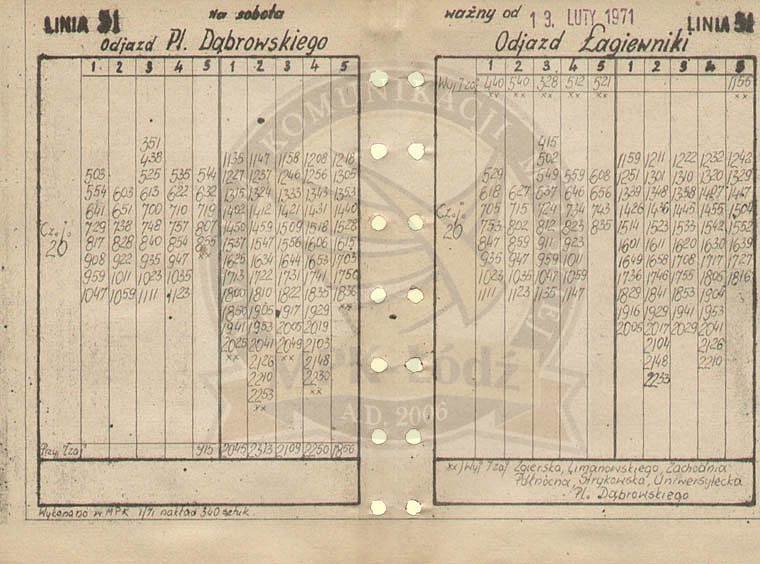 LINIA 51
Na sobota
Odjazd Pl. Dąbrowskiego
1 2 3 4 5 1 2 3 4 5
351
438 1135 1147 1158 1208 1218
503 525 535 544 1227 1237 1246 1256 1305
554 603 613 622 632 1315 1324 1333 1343 1353
641 651 700 710 719 1402 1412 1421 1431 1440
729 738 748 757 807 1450 1459 1509 1518 1528
817 828 840 854 1537 1547 1556 1606 1615
908 922 935 947 1625 1634 1644 1653 1703
959 1011 1023 1035 1713 1722 1731 1741 1750
1047 1059 1111 1123 1800 1810 1822 1835
1905 1917 1929 xx
1941 1953 2005 2019
2025 2041 2049 2103
xx 2126 xx 2148
2210 2230
2253 xx
xx
20
915 2045 2313 2109 2250 1856
Wykonano w MPK 1/71 nakład 340 sztuk.
ważny od 13. LUTY 1971
LINIA 51
Odjazd Łagiewniki
1 2 3 4 5 1 2 3 4 5
Wyj Tzaj 440 540 328 512 521 1156
xx xx xx xx xx xx
415
502 1159 1211 1222 1232 1242
529 549 559 608 1251 1301 1310 1320 1329
618 627 637 646 656 1339 1348 1358 1407 1417
705 715 724 734 743 1426 1436 1445 1455 1504
753 802 812 823 835 1514 1523 1533 1542 1552
847 859 911 923 1601 1611 1620 1630 1639
935 947 959 1011 1649 1658 1708 1717 1727
1023 1035 1047 1059 1736 1746 1755 1805 1816
1111 1123 1135 1147 1829 1841 1853 1904
1916 1929 1941 1953
2005 2017 2029 2041
2104 2126
2148 2210
2233
20
xx) Wyj Tzaj Zgierska, Limanowskiego, Zachodnia
Północna, Strykowska, Uniwersytecka
Pl. Dąbrowskiego
KOMUNIKACJI
MPK-Łódź
A.D. 2006